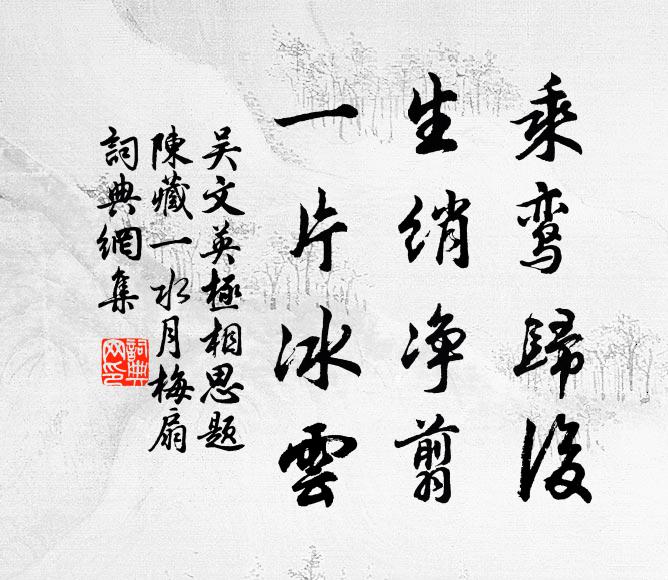 乘鸾歸後
生绡净翦
一片冰雲
吴文英極相思题
陳藏一水月梅扇
詞典網集
詞典网印